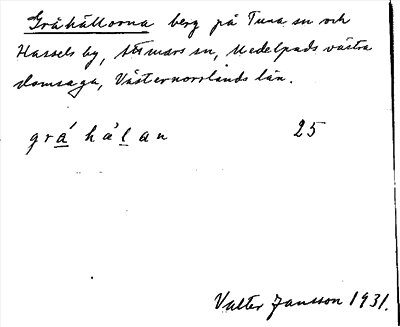 Gråhällorna berg på Tuna sn och
Hassels by, Attmars sn, Medelpads västra
domsaga, Västernorrlands län.
grá hà̊lan 25
Valter Jansson 1931.